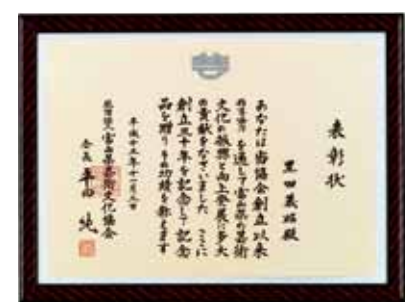 表彰状
黒田義昭殿
あなたは当協会創立以来
を通して富山県の芸術
文化の振興と向上発展に多大
の貢献をなさいました ここに
創立三十年を記念して記念
品を贈り その功績を称えます
平成十三年十一月三日
富山県芸術文化協会
会長 平田 純